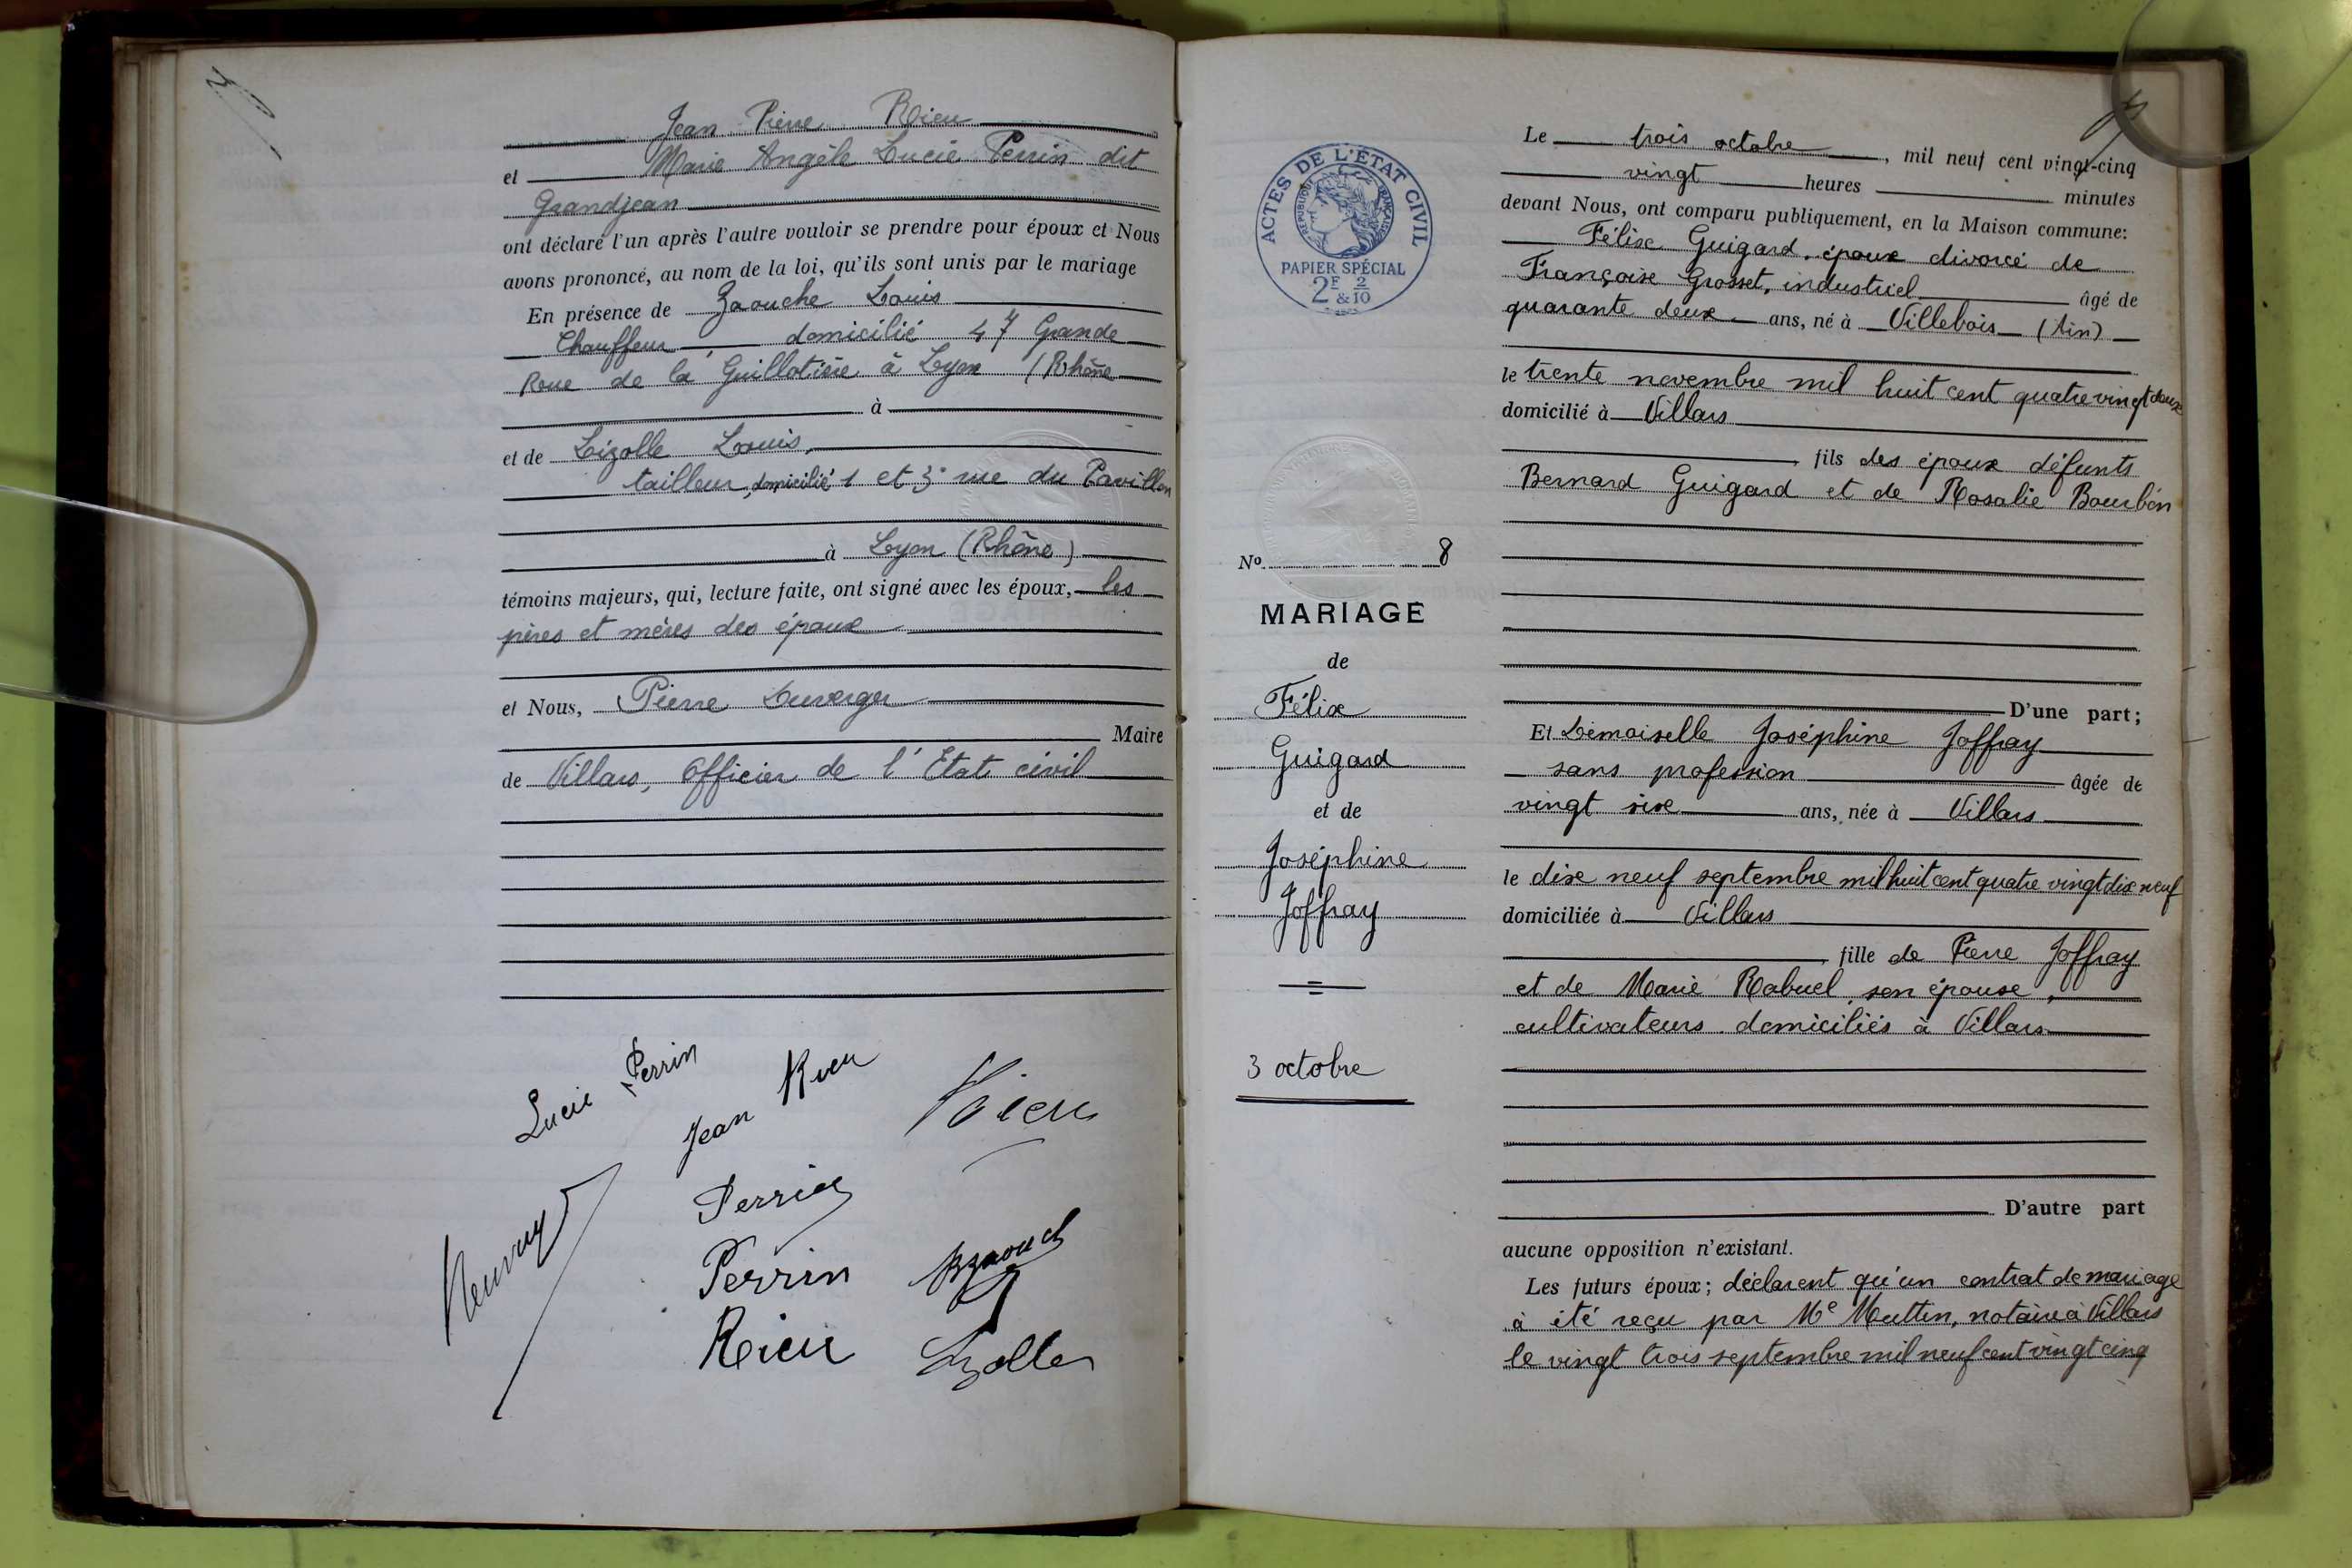 Jean Pierre Rieu
et Marie Angèle Lucie Perrin dit
Grandjean
ont déclaré l'un après l'autre vouloir se prendre pour époux et Nous
avons prononcé, au nom de la loi, qu'ils sont unis par le mariage
En présence de Zaouche Louis
Chauffeur, domicilié 47 Grande
Rue de la Guillotière à Lyon (Rhône
à
et de Lizolle Louis,
tailleur, domicilié 1 et 3 rue du Pavillon
à Lyon (Rhône)
témoins majeurs, qui, lecture faite, ont signé avec les époux, les
pères et mères des époux
et Nous, Pierre Duverger
Maire
de Villars, Officier de l'Etat civil
Lucie Perrin
Jean Rieu
Rieu
Perrin
Perrin
Rieu
Lizolle
ACTES DE L'ÉTAT CIVIL
RÉPUBLIQUE FRANÇAISE
PAPIER SPÉCIAL
2F 2
& 10
No 8
MARIAGE
de
Félix
Guigard
et de
Joséphine
Joffray
3 octobre
Le trois octobre, mil neuf cent vingt-cinq
vingt heures minutes
devant Nous, ont comparu publiquement, en la Maison commune:
Félix Guigard, époux divorcé de
Françoise Grosset, industriel âgé de
quarante deux ans, né à Villebois (Ain)
le trente novembre mil huit cent quatre vingt deux
domicilié à Villars
, fils des époux défunts
Bernard Guigard et de Rosalie Bourbon
D'une part;
Et Demoiselle Joséphine Joffray
sans profession âgée de
vingt six ans, née à Villars
le dix neuf septembre mil huit cent quatre vingt dix neuf
domiciliée à Villars
, fille de Pierre Joffray
et de Marie Rabuel, son épouse,
cultivateurs domiciliés à Villars
D'autre part
aucune opposition n'existant.
Les futurs époux; déclarent qu'un contrat de mariage
à été reçu par Me Muttin, notaire à Villars
le vingt trois septembre mil neuf cent vingt cinq